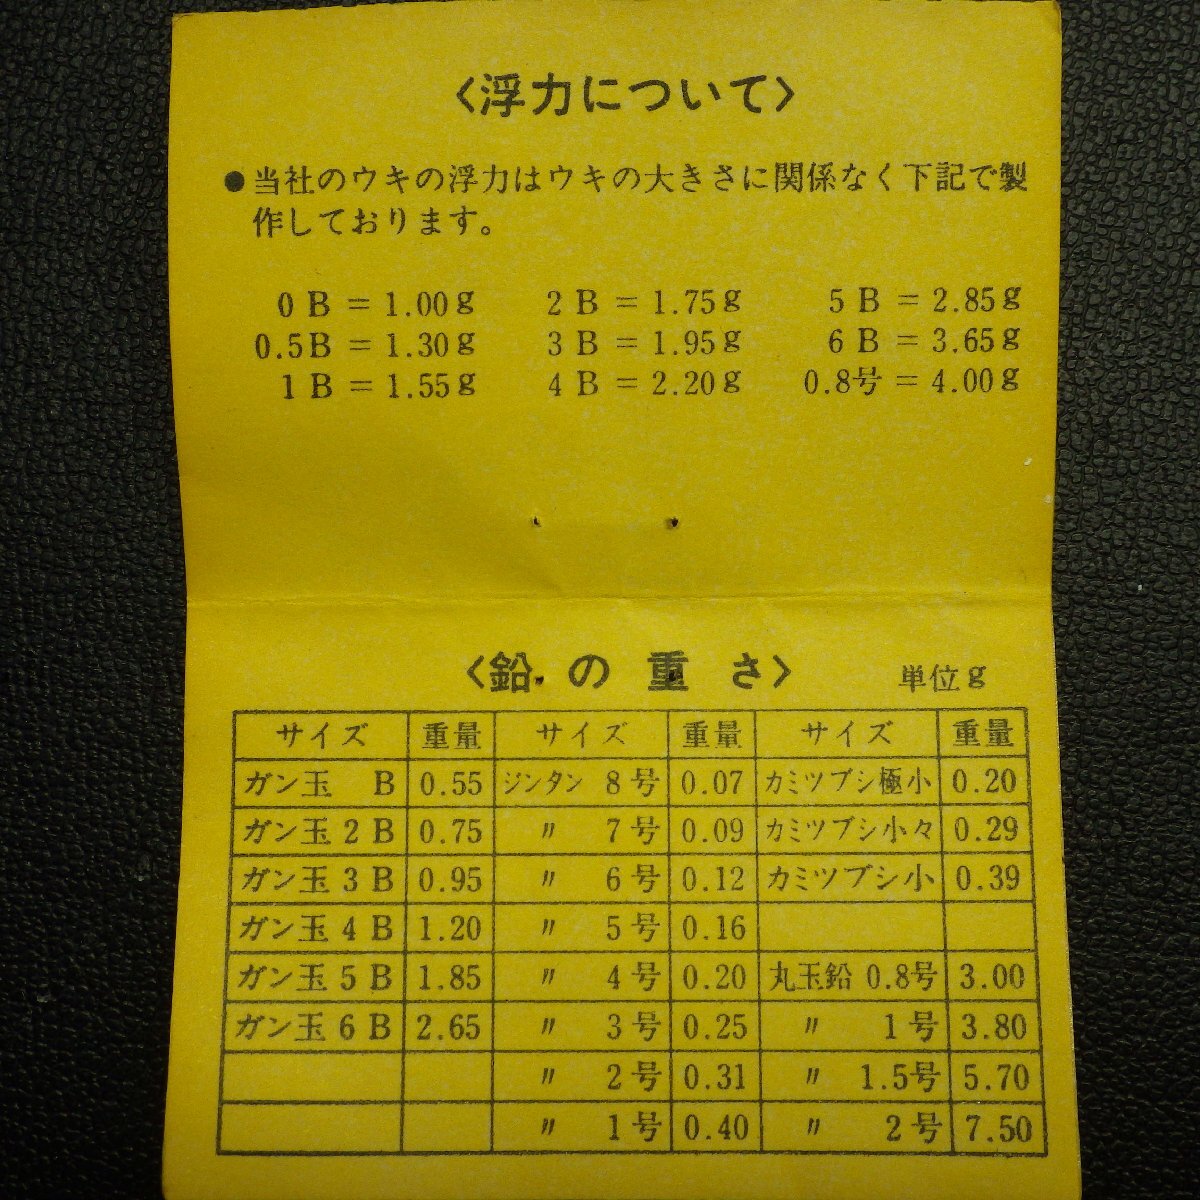 〈浮力について〉
●当社のウキの浮力はウキの大きさに関係なく下記で製
作しております。
0B＝1.00g 2B＝1.75g 5B＝2.85g
0.5B＝1.30g 3B＝1.95g 6B＝3.65g
1B＝1.55g 4B＝2.20g 0.8号＝4.00g
〈鉛の重さ〉 単位g
サイズ 重量 サイズ 重量 サイズ 重量
ガン玉 B 0.55 ジンタン 8号 0.07 カミツブシ極小 0.20
ガン玉2B 0.75 〃 7号 0.09 カミツブシ小々 0.29
ガン玉3B 0.95 〃 6号 0.12 カミツブシ小 0.39
ガン玉4B 1.20 〃 5号 0.16
ガン玉5B 1.85 〃 4号 0.20 丸玉鉛 0.8号 3.00
ガン玉6B 2.65 〃 3号 0.25 〃 1号 3.80
〃 2号 0.31 〃 1.5号 5.70
〃 1号 0.40 〃 2号 7.50